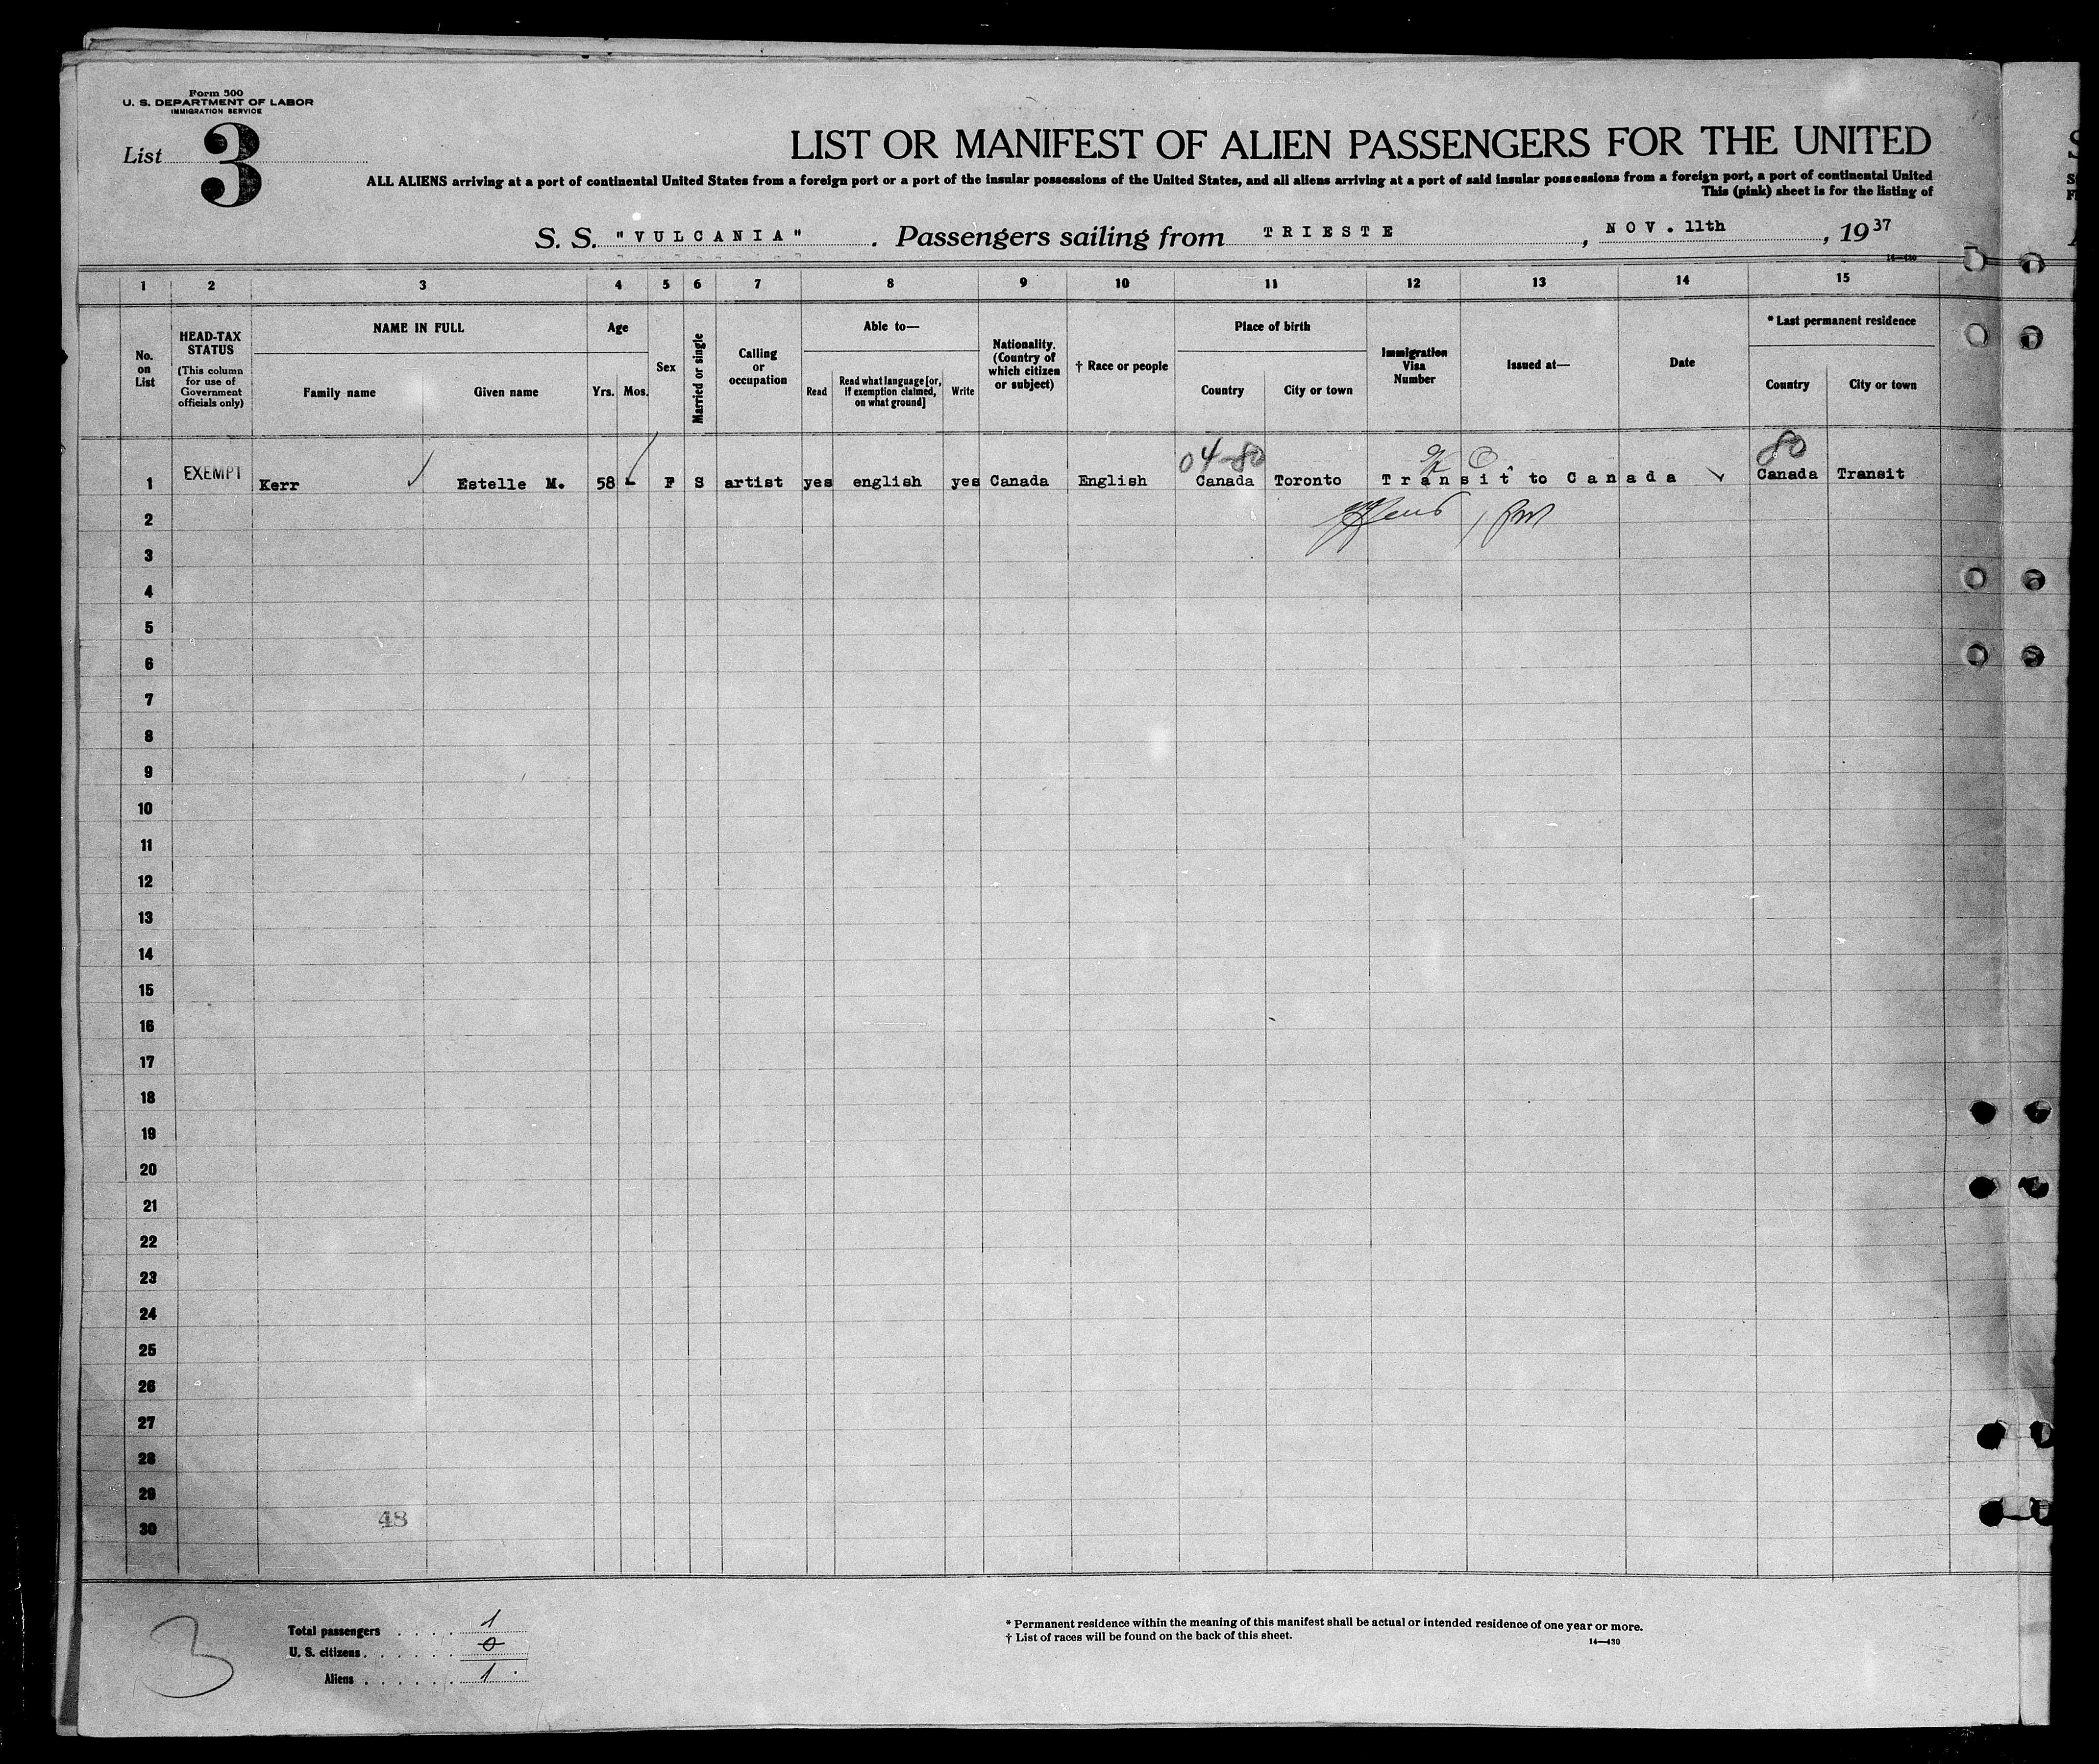 Form 500
U. S. DEPARTMENT OF LABOR
IMMIGRATION SERVICE
List 3
LIST OR MANIFEST OF ALIEN PASSENGERS FOR THE UNITED
ALL ALIENS arriving at a port of continental United States from a foreign port or a port of the insular possessions of the United States, and all aliens arriving at a port of said insular possessions from a foreign port, a port of continental United
This (pink) sheet is for the listing of
S. S. "VULCANIA". Passengers sailing from TRIESTE, NOV. 11th, 1937
14—430
1 2 3 4 5 6 7 8 9 10 11 12 13 14 15
No. on List
HEAD-TAX STATUS
(This column for use of Government officials only)
NAME IN FULL
Family name Given name
Age
Yrs. Mos.
Sex
Married or single
Calling or occupation
Able to—
Read
Read what language [or, if exemption claimed, on what ground]
Write
Nationality. (Country of which citizen or subject)
† Race or people
Place of birth
Country City or town
Immigration Visa Number
Issued at—
Date
* Last permanent residence
Country City or town
04-80 80
1 EXEMPT Kerr Estelle M. 58 - F S artist yes english yes Canada English Canada Toronto Transit to Canada Canada Transit
2
3
4
5
6
7
8
9
10
11
12
13
14
15
16
17
18
19
20
21
22
23
24
25
26
27
28
29
30
48
3
Total passengers 1
U. S. citizens 0
Aliens 1
* Permanent residence within the meaning of this manifest shall be actual or intended residence of one year or more.
† List of races will be found on the back of this sheet.
14—430